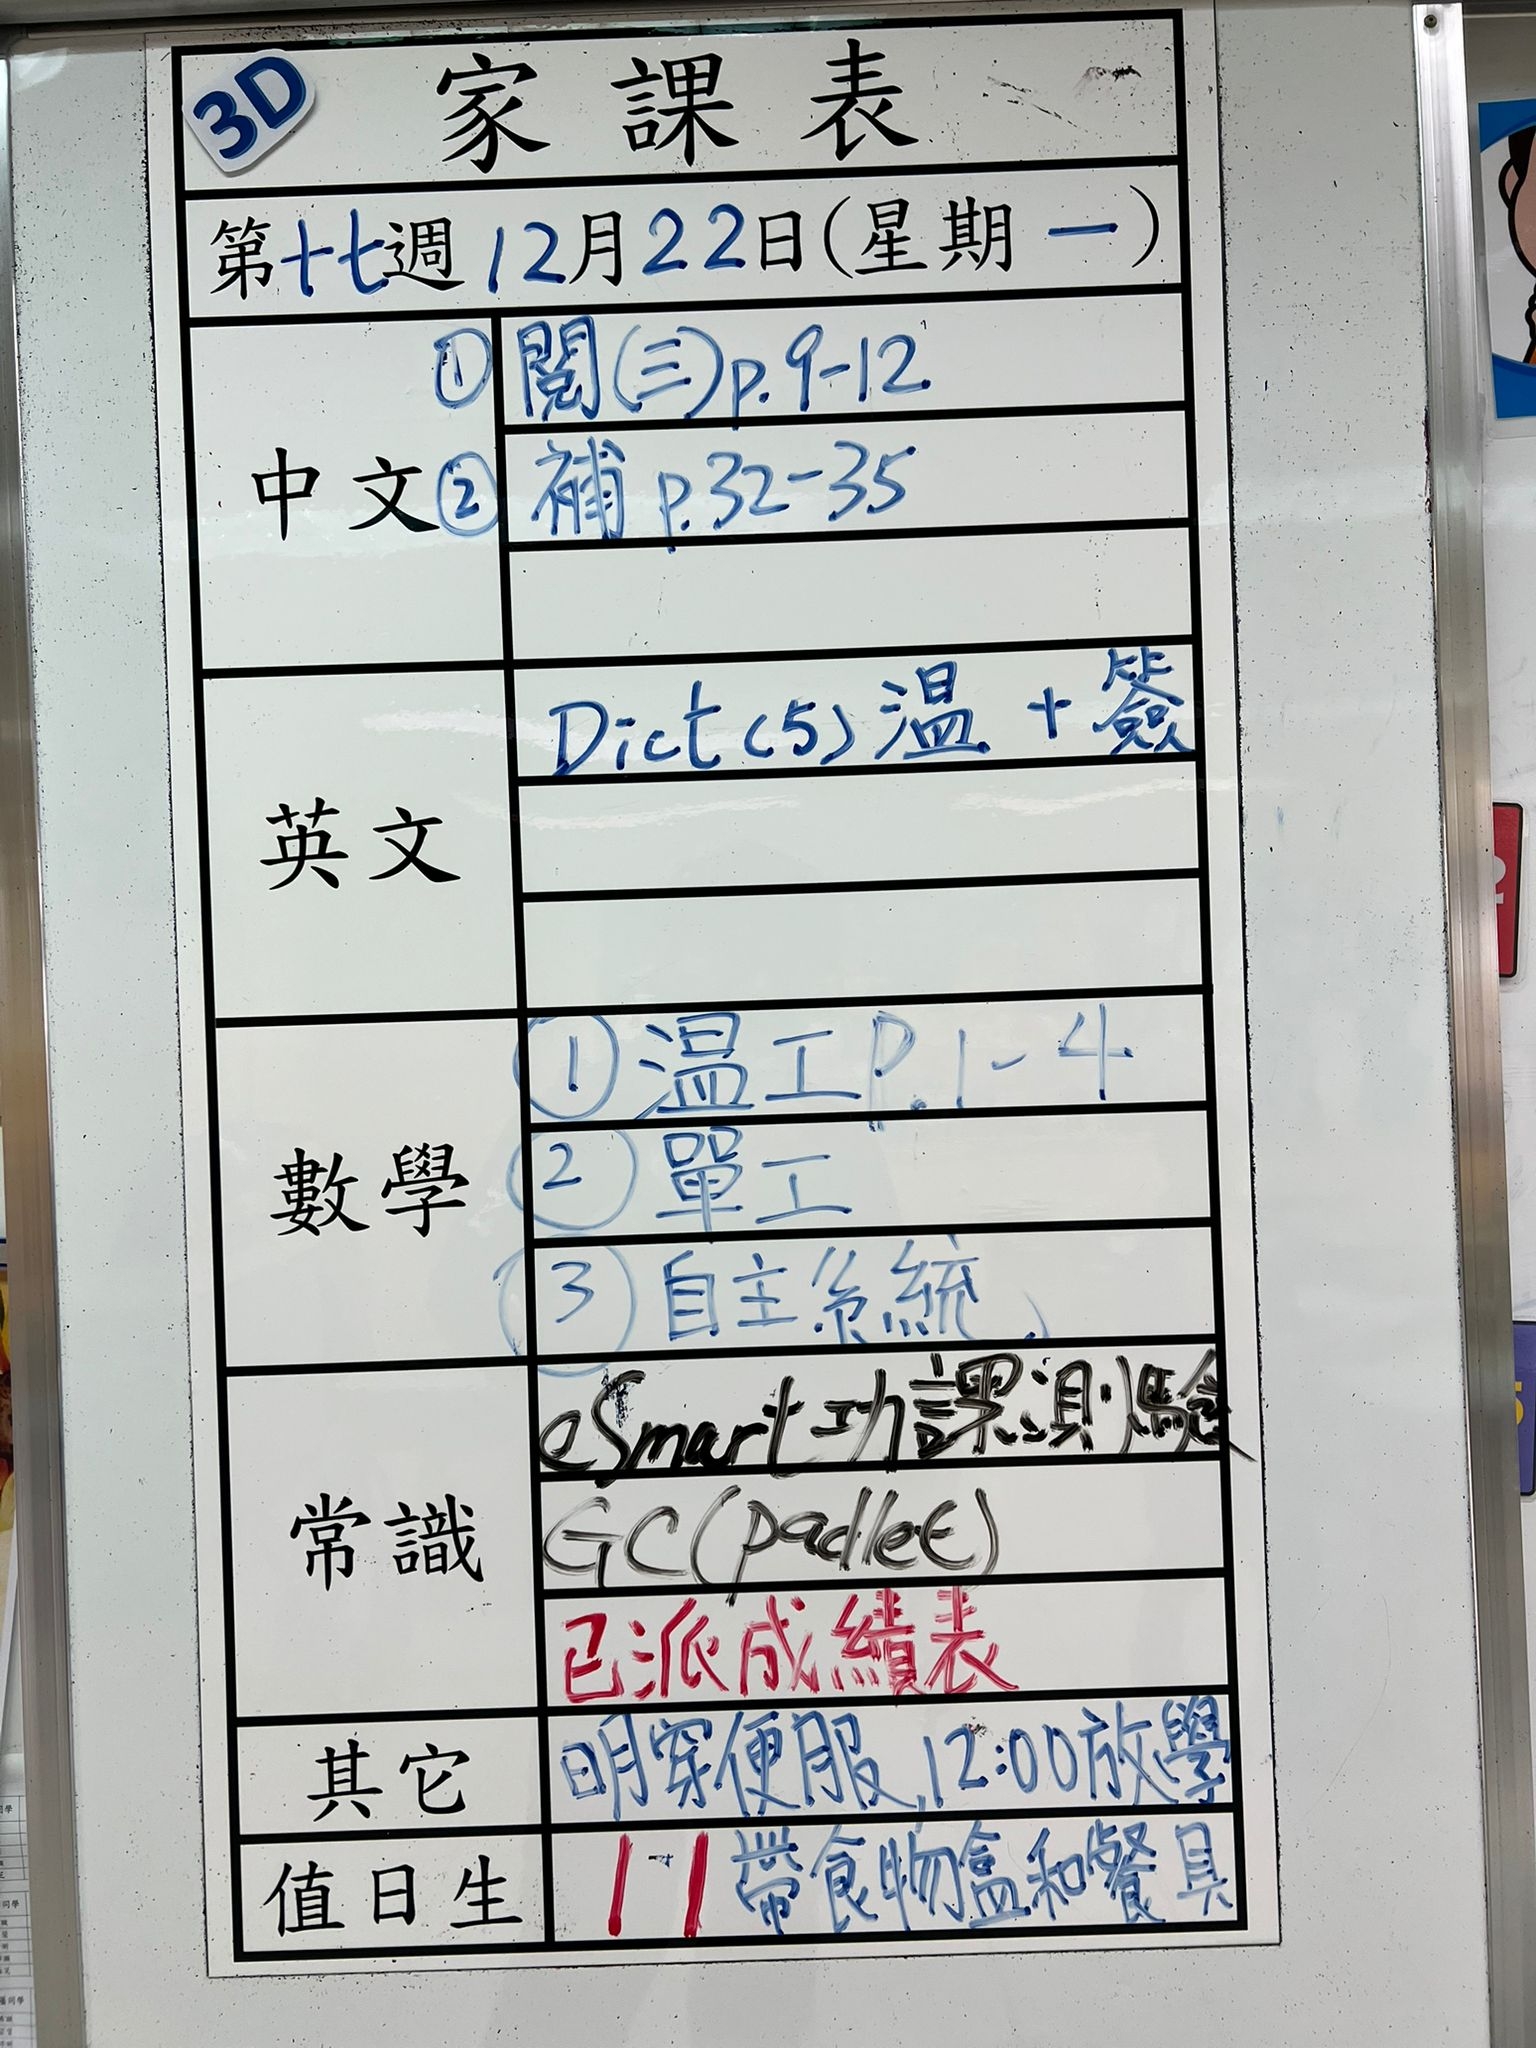 3D 家課表
第十七週 12月22日(星期一)
中文
① 閱(三)p.9-12
② 補 p.32-35
英文
Dict(5) 溫 + 簽
數學
① 溫工 P.1-4
② 單工
③ 自主系統
常識
eSmart功課測驗
GC(padlet)
已派成績表
其它
明穿便服,12:00放學
值日生
11 帶食物盒和餐具